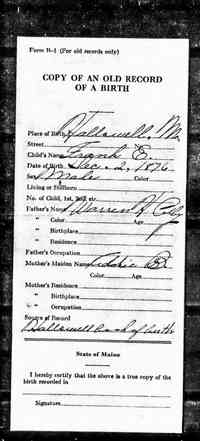 Form H-1 (For old records only)
COPY OF AN OLD RECORD
OF A BIRTH
Place of Birth Hallowell, Me
Street No.
Child's Name Frank E.
Date of Birth Dec. 2, 1876
Sex Male Color
Living or Stillborn
No. of Child, 1st, 2nd, etc.
Father's Name Warren
" Color Age
" Birthplace
" Residence
Father's Occupation
Mother's Maiden Name Addie B.
Color Age
Mother's Residence
" Birthplace
" Occupation
Source of Record
Hallowell book of births
State of Maine
I hereby certify that the above is a true copy of the
birth recorded in
Signature